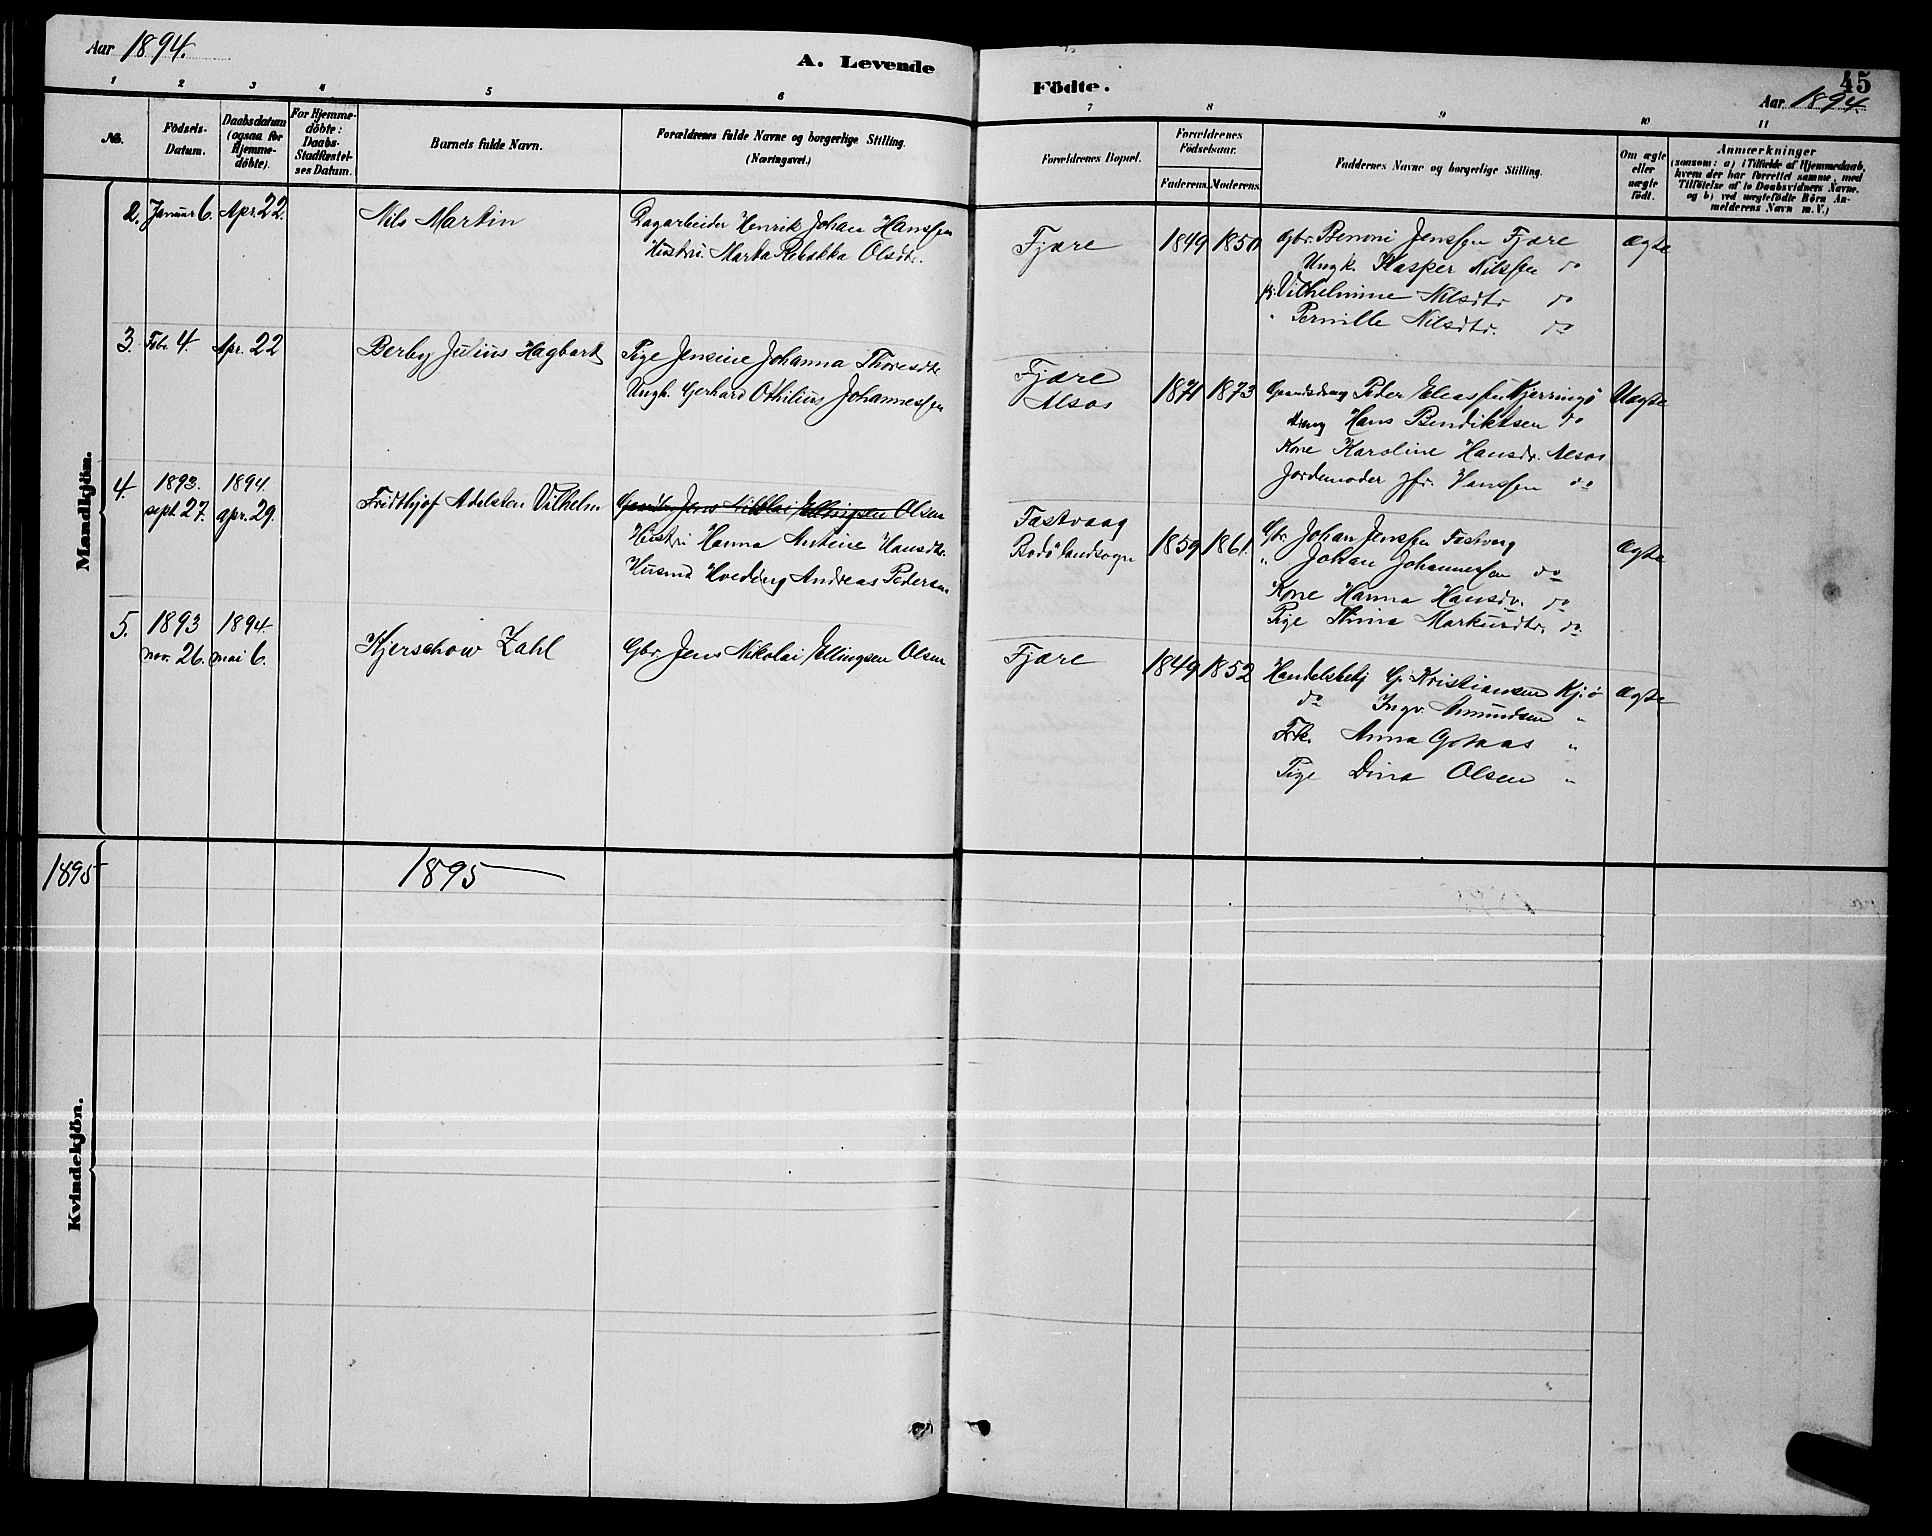 Aar 1894.
A. Levende
1 2 3 4 5 6
No.
Födsels-Datum.
Daabsdatum (ogsaa for Hjemme-döbte).
For Hjemme-döbte: Daabs-Stadfæstel-ses Datum.
Barnets fulde Navn.
Forældrenes fulde Navne og borgerlige Stilling.
(Næringsvei.)
Mandkjön.
2. Januar 6. Apr. 22. Nils Martin
Dagarbeider Henrik Johan Hanssen
Hustru Marta Rebekka Olsdtr.
3. Febr. 4. Apr. 22 Berby Julius Hagbart
Pige Jensine Johanna Thoresdtr
Ungk. Gerhard Othilius Johannessen
4. 1893. sept. 27. 1894. apr. 29. Fridthjof Adelsten Vilhelm
Jens Nikolai Ellingsen Olsen
Hustru Hanna Antine Hansdtr.
Husmd Hveding Andreas Pedersen
5. 1893 nov. 26. 1894. mai 6. Kjerschow Zahl
Gbr. Jens Nikolai Ellingsen Olsen
1895 1895
Kvindekjön.
Födte.
45
Aar 1894.
7 8 9 10 11
Forældrenes Bopæl.
Forældrenes Födselsaar.
Faderens. Moderens.
Faddernes Navne og borgerlige Stilling.
Om ægte eller uægte födt.
Anmærkninger
(saasom: a) i Tilfælde af Hjemmedaab, hvem der har forrettet samme, med Tilföielse af to Daabsvidners Navne. og b) ved uægtefödte Börn An-melderens Navn m. V.)
Fjære 1849 1850 Gbr. Benoni Jenssen Fjære Ægte
Ungk. Kasper Nilssen do
Vilhelmine Nilsdtr do
" Pernille Nilsdtr. do
Fjære
Alsos 1871 1873 Peder Eliassen Kjerringö Uægte
Hans Bendiktsen do
Kone Karoline Hansdr. Alsos
Jordemoder jfr. Hanssen do
Fastvaag
Bodö landsogn 1859 1861. Gbr. Johan Jenssen Fastvaag Ægte
" Johan Johannessen do
Kone Hanna Hansdr. do
Pige Thina Markusdtr. do
Fjære 1849 1852 Handelsbetj G. Kristiansen Kj.ö Ægte
do Ingv. Amundsen "
Frk. Anna Gotaas "
Pige Dina Olsen "